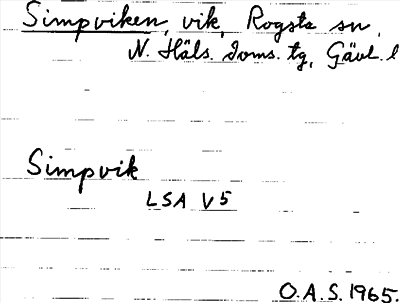 Simpviken, vik, Rogsta sn,
N. Häls. doms. tg, Gävl. l
Simpvik
LSA V5
O.A.S. 1965.